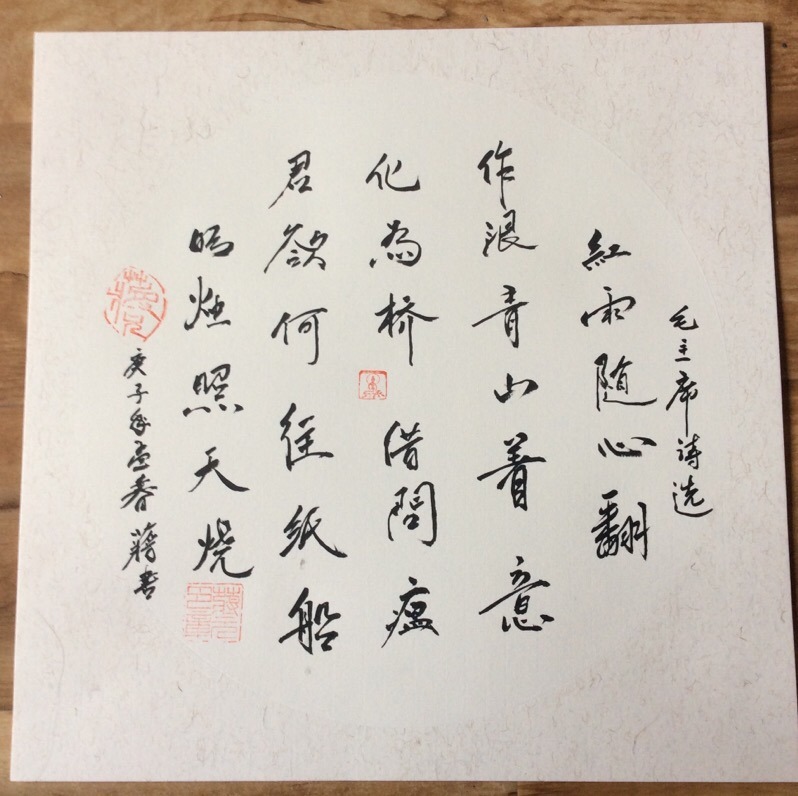 毛主席诗选
紅雨随心翻
作浪青山着意
化為桥 借問瘟
君欲何往纸船
明烛照天烧
庚子年孟春 蒋書